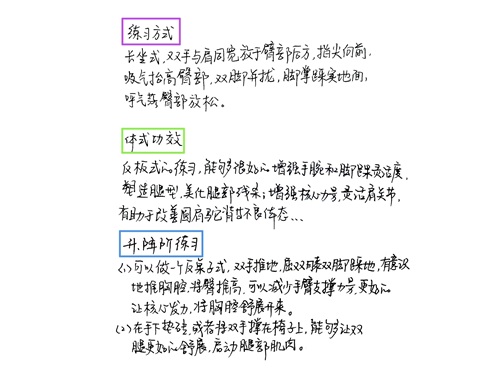 练习方式
长坐式,双手与肩同宽放于臀部后方,指尖向前,
吸气抬高臀部,双脚并拢,脚掌踩实地面,
呼气落臀部放松。
体式功效
反板式的练习,能够很好的增强手腕和脚踝灵活度,
塑造腿型,美化腿部线条;增强核心力量,灵活肩关节,
有助于改善圆肩驼背等不良体态...
升.降阶练习
(1)可以做一个反桌子式,双手推地,屈双膝双脚踩地,有意识
地推胸腔,将臀推高,可以减少手臂支撑力量,更好的
让核心发力,将胸腔舒展开来。
(2)在手下垫砖,或者将双手撑在椅子上,能够让双
腿更好的舒展,启动腿部肌肉。